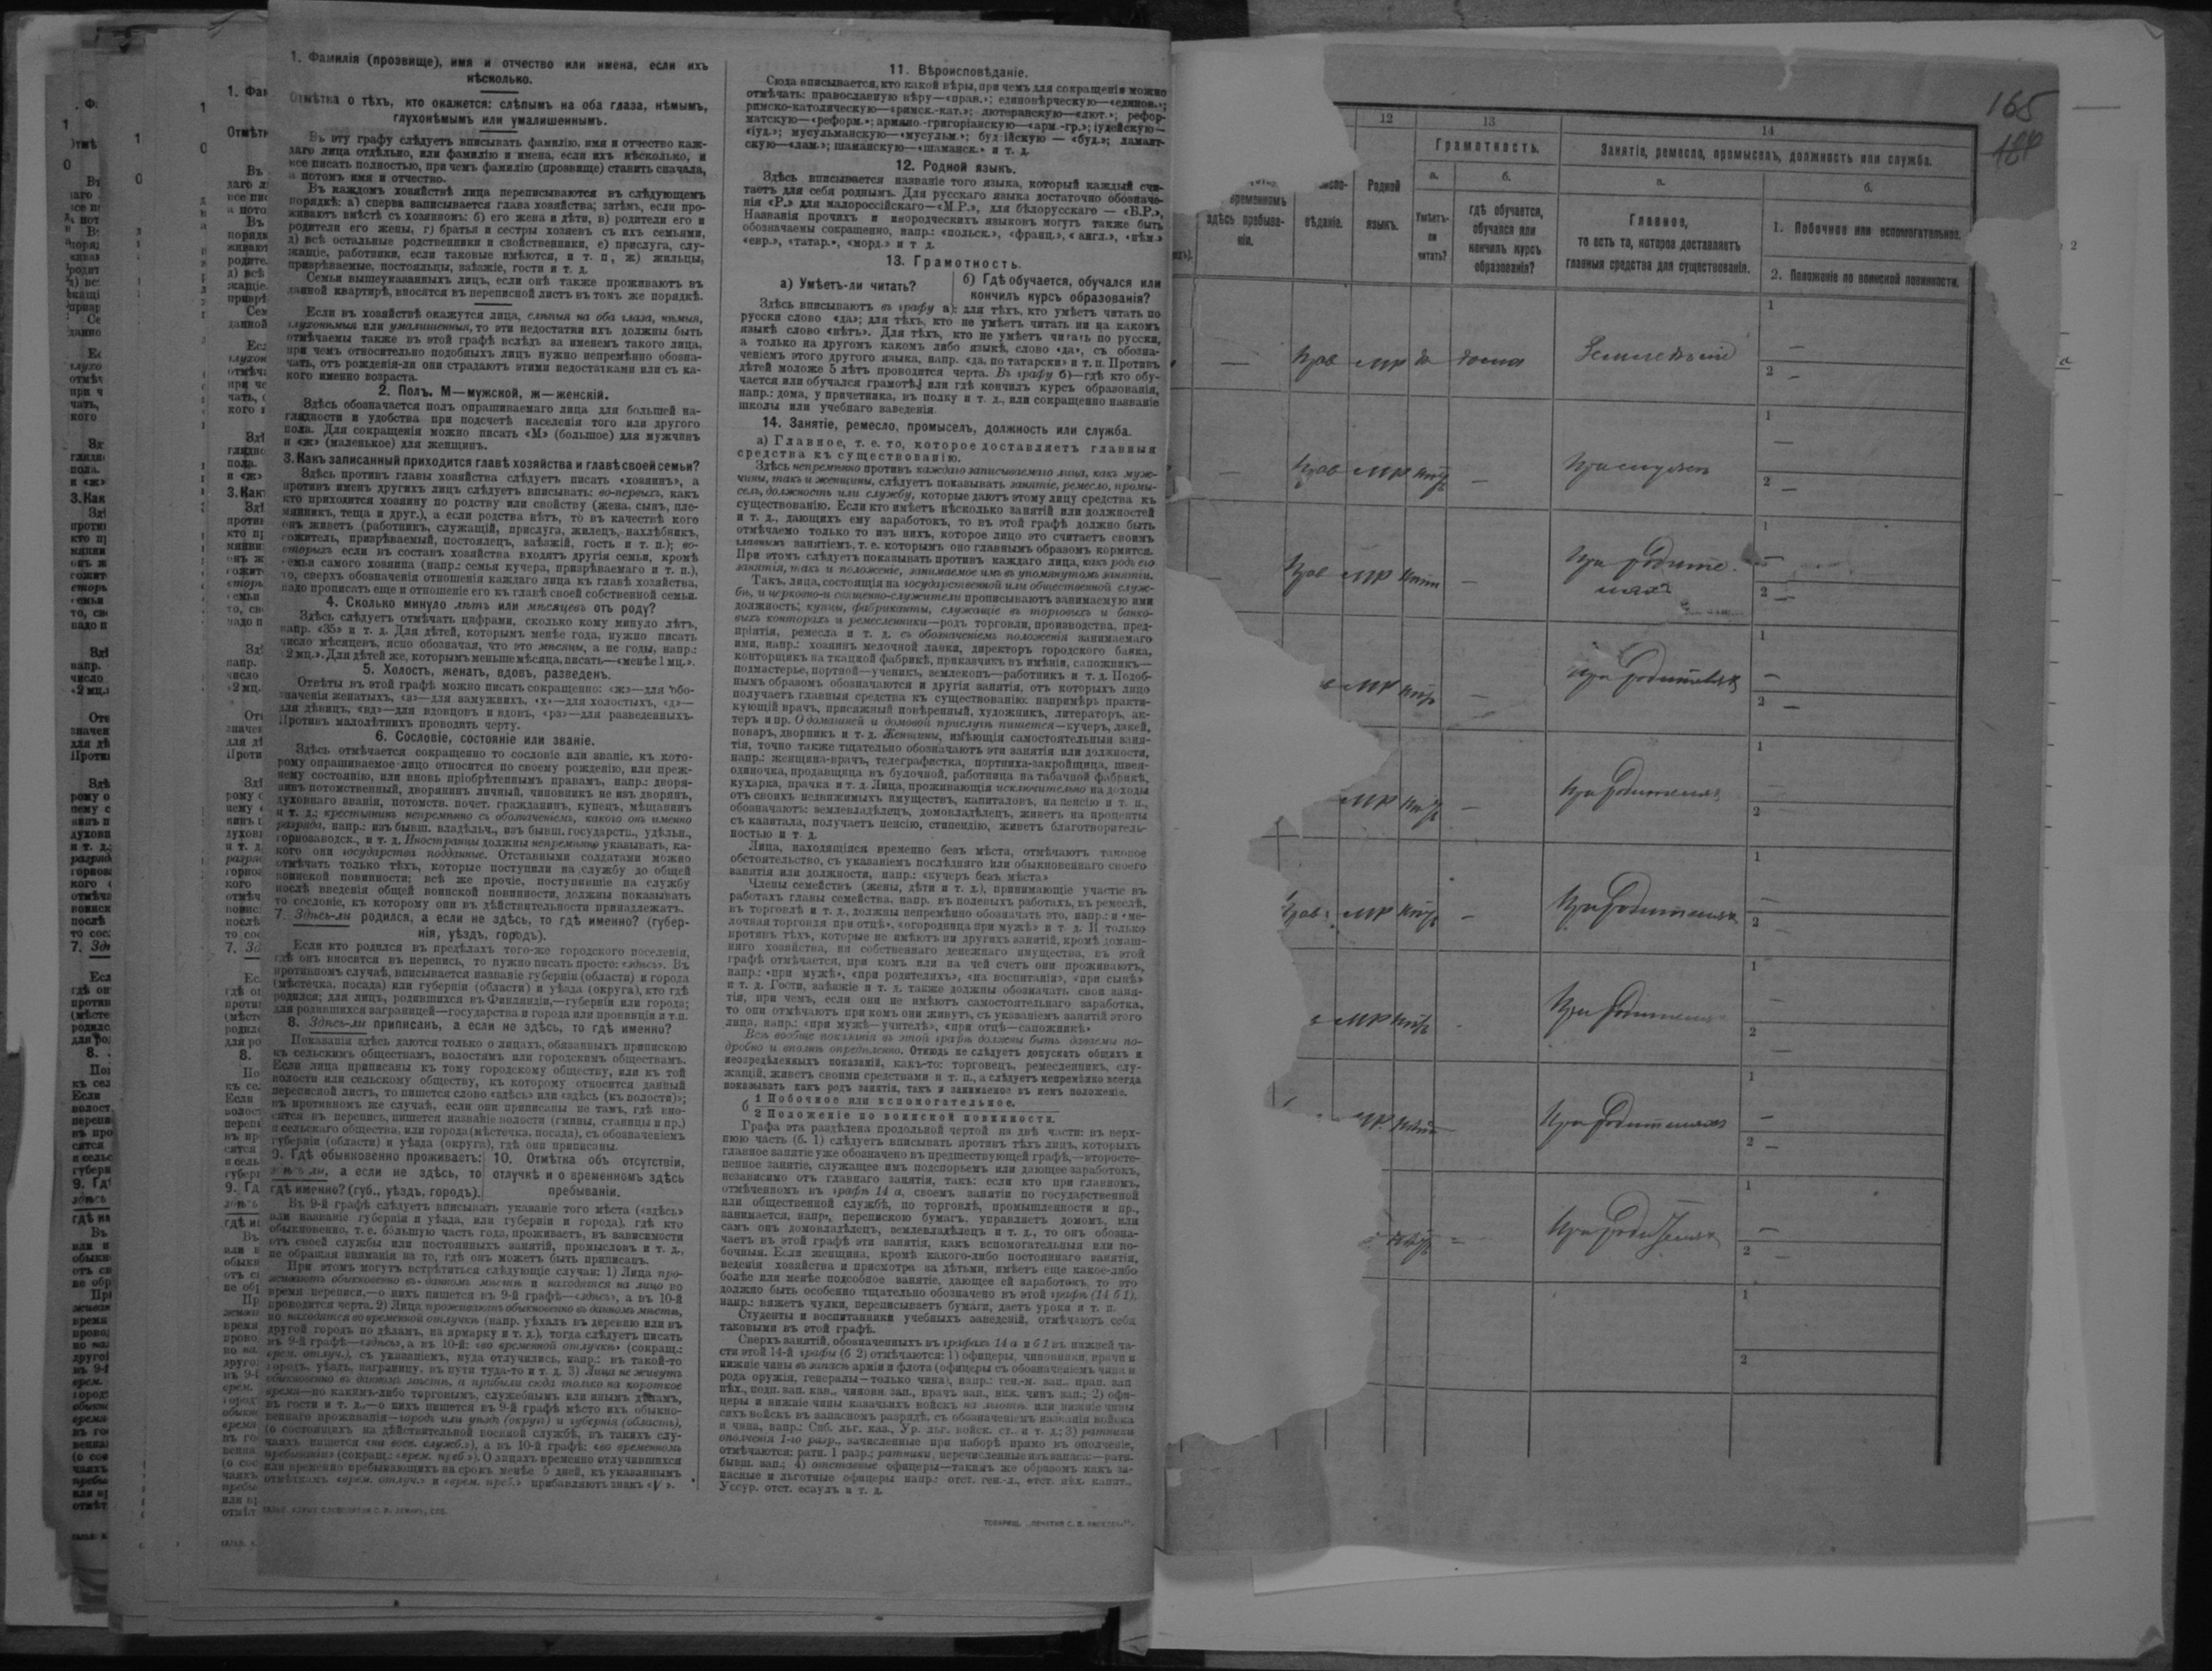 1. Фамилія (прозвище), имя и отчество или имена, если ихъ
нѣсколько.
Отмѣтка о тѣхъ, кто окажется: слѣпымъ на оба глаза, нѣмымъ,
глухонѣмымъ или умалишеннымъ.
Въ эту графу слѣдуетъ вписывать фамилію, имя и отчество каж-
даго лица отдѣльно, или фамилію и имена, если ихъ нѣсколько, и
все писать полностью, при чемъ фамилію (прозвище) ставить сначала,
а потомъ имя и отчество.
Въ каждомъ хозяйствѣ лица переписываются въ слѣдующемъ
порядкѣ: а) сперва записывается глава хозяйства; затѣмъ, если про-
живаютъ вмѣстѣ съ хозяиномъ: б) его жена и дѣти, в) родители его и
родители его жены, г) братья и сестры хозяевъ съ ихъ семьями,
д) всѣ остальные родственники и свойственники, е) прислуга, слу-
жащіе, работники, если таковые имѣются, и т. п., ж) жильцы,
призрѣваемые, постояльцы, заѣзжіе, гости и т. д.
Семьи вышеуказанныхъ лицъ, если онѣ также проживаютъ въ
данной квартирѣ, вносятся въ переписной листъ въ томъ же порядкѣ.
Если въ хозяйствѣ окажутся лица, слѣпыя на оба глаза, нѣмыя,
глухонѣмыя или умалишенныя, то эти недостатки ихъ должны быть
отмѣчаемы также въ этой графѣ вслѣдъ за именемъ такого лица,
при чемъ относительно подобныхъ лицъ нужно непремѣнно обозна-
чать, отъ рожденія-ли они страдаютъ этими недостатками или съ ка-
кого именно возраста.
2. Полъ. М—мужской, ж—женскій.
Здѣсь обозначается полъ опрашиваемаго лица для большей на-
глядности и удобства при подсчетѣ населенія того или другого
пола. Для сокращенія можно писать «М» (большое) для мужчинъ
и «ж» (маленькое) для женщинъ.
3. Какъ записанный приходится главѣ хозяйства и главѣ своей семьи?
Здѣсь противъ главы хозяйства слѣдуетъ писать «хозяинъ», а
противъ именъ другихъ лицъ слѣдуетъ вписывать: во-первыхъ, какъ
кто приходится хозяину по родству или свойству (жена, сынъ, пле-
мянникъ, теща и друг.), а если родства нѣтъ, то въ качествѣ кого
онъ живетъ (работникъ, служащій, прислуга, жилецъ, нахлѣбникъ,
сожитель, призрѣваемый, постоялецъ, заѣзжій, гость и т. п.); во-
вторыхъ если въ составъ хозяйства входятъ другія семьи, кромѣ
семьи самого хозяина (напр.: семья кучера, призрѣваемаго и т. п.),
то, сверхъ обозначенія отношенія каждаго лица къ главѣ хозяйства,
надо прописать еще и отношеніе его къ главѣ своей собственной семьи.
4. Сколько минуло лѣтъ или мѣсяцевъ отъ роду?
Здѣсь слѣдуетъ отмѣчать цифрами, сколько кому минуло лѣтъ,
напр. «35» и т. д. Для дѣтей, которымъ менѣе года, нужно писать
число мѣсяцевъ, ясно обозначая, что это мѣсяцы, а не годы, напр.:
«2 мц.». Для дѣтей же, которымъ меньше мѣсяца, писать—«менѣе 1 мц.».
5. Холостъ, женатъ, вдовъ, разведенъ.
Отвѣты въ этой графѣ можно писать сокращенно: «ж»—для обо-
значенія женатыхъ, «з»—для замужнихъ, «х»—для холостыхъ, «д»—
для дѣвицъ, «вд»—для вдовцовъ и вдовъ, «ра»—для разведенныхъ.
Противъ малолѣтнихъ проводить черту.
6. Сословіе, состояніе или званіе.
Здѣсь отмѣчается сокращенно то сословіе или званіе, къ кото-
рому опрашиваемое лицо относится по своему рожденію, или преж-
нему состоянію, или вновь пріобрѣтеннымъ правамъ, напр.: дворя-
нинъ потомственный, дворянинъ личный, чиновникъ не изъ дворянъ,
духовнаго званія, потомств. почет. гражданинъ, купецъ, мѣщанинъ
и т. д.; крестьянинъ непремѣнно съ обозначеніемъ, какого онъ именно
разряда, напр.: изъ бывш. владѣльч., изъ бывш. государств., удѣльн.,
горнозаводск., и т. д. Иностранцы должны непремѣнно указывать, ка-
кого они государства подданные. Отставными солдатами можно
отмѣчать только тѣхъ, которые поступили на службу до общей
воинской повинности; всѣ же прочіе, поступившіе на службу
послѣ введенія общей воинской повинности, должны показывать
то сословіе, къ которому они въ дѣйствительности принадлежатъ.
7. Здѣсь-ли родился, а если не здѣсь, то гдѣ именно? (губер-
нія, уѣздъ, городъ).
Если кто родился въ предѣлахъ того-же городского поселенія,
гдѣ онъ вносится въ перепись, то нужно писать просто: «здѣсь». Въ
противномъ случаѣ, вписывается названіе губерніи (области) и города
(мѣстечка, посада) или губерніи (области) и уѣзда (округа), кто гдѣ
родился; для лицъ, родившихся въ Финляндіи,—губерніи или города;
для родившихся заграницей—государства и города или провинціи и т.п.
8. Здѣсь-ли приписанъ, а если не здѣсь, то гдѣ именно?
Показанія здѣсь даются только о лицахъ, обязанныхъ припискою
къ сельскимъ обществамъ, волостямъ или городскимъ обществамъ.
Если лица приписаны къ тому городскому обществу, или къ той
волости или сельскому обществу, къ которому относится данный
переписной листъ, то пишется слово «здѣсь» или «здѣсь (къ волости)»;
въ противномъ же случаѣ, если они приписаны не тамъ, гдѣ вно-
сятся въ перепись, пишется названіе волости (гмины, станицы и пр.)
и сельскаго общества, или города (мѣстечка, посада), съ обозначеніемъ
губерніи (области) и уѣзда (округа), гдѣ они приписаны.
9. Гдѣ обыкновенно проживаетъ:
здѣсь ли, а если не здѣсь, то
гдѣ именно? (губ., уѣздъ, городъ).
10. Отмѣтка объ отсутствіи,
отлучкѣ и о временномъ здѣсь
пребываніи.
Въ 9-й графѣ слѣдуетъ вписывать указаніе того мѣста («здѣсь»
или названіе губерніи и уѣзда, или губерніи и города), гдѣ кто
обыкновенно, т. е. большую часть года, проживаетъ, въ зависимости
отъ своей службы или постоянныхъ занятій, промысловъ и т. д.,
не обращая вниманія на то, гдѣ онъ можетъ быть приписанъ.
При этомъ могутъ встрѣтиться слѣдующіе случаи: 1) Лица про-
живаютъ обыкновенно въ данномъ мѣстѣ и находятся на лицо во
время переписи,—о нихъ пишется въ 9-й графѣ—«здѣсь», а въ 10-й
проводится черта. 2) Лица проживаютъ обыкновенно въ данномъ мѣстѣ,
но находятся во временной отлучкѣ (напр. уѣхалъ въ деревню или въ
другой городъ по дѣламъ, на ярмарку и т. д.), тогда слѣдуетъ писать
въ 9-й графѣ—«здѣсь», а въ 10-й: «во временной отлучкѣ» (сокращ.:
врем. отлуч.), съ указаніемъ, куда отлучились, напр.: въ такой-то
городъ, уѣздъ, заграницу, въ пути туда-то и т. д. 3) Лица не живутъ
обыкновенно въ данномъ мѣстѣ, а прибыли сюда только на короткое
время—по какимъ-либо торговымъ, служебнымъ или инымъ дѣламъ,
въ гости и т. д.—о нихъ пишется въ 9-й графѣ мѣсто ихъ обыкно-
веннаго проживанія—городъ или уѣздъ (округъ) и губернія (область),
(о состоящихъ на дѣйствительной военной службѣ, въ такихъ слу-
чаяхъ пишется «на воен. служб.»), а въ 10-й графѣ: «во временномъ
пребываніи» (сокращ.: «врем. преб.»). О лицахъ временно отлучившихся
или временно пребывающихъ на срокъ менѣе 5 дней, къ указаннымъ
отмѣткамъ «врем. отлуч.» и «врем. преб.» прибавляютъ знакъ «V».
11. Вѣроисповѣданіе.
Сюда вписывается, кто какой вѣры, при чемъ для сокращенія можно
отмѣчать: православную вѣру—«прав.»; единовѣрческую—«единов.»;
римско-католическую—«римск.-кат.»; лютеранскую—«лют.»; рефор-
матскую—«реформ.»; армяно.-григоріанскую—«арм.-гр.»; іудейскую—
«іуд.»; мусульманскую—«мусульм.»; буд ійскую — «буд.»; ламаит-
скую—«лам.»; шаманскую—«шаманск.» и т. д.
12. Родной языкъ.
Здѣсь вписывается названіе того языка, который каждый счи-
таетъ для себя роднымъ. Для русскаго языка достаточно обозначе-
нія «Р.» для малороссійскаго—«М.Р.», для бѣлорусскаго — «Б.Р.»,
Названія прочихъ и инородческихъ языковъ могутъ также быть
обозначаемы сокращенно, напр.: «польск.», «франц.», «англ.», «нѣм.»
«евр.», «татар.», «морд.» и т д.
13. Грамотность.
а) Умѣетъ-ли читать?
б) Гдѣ обучается, обучался или
кончилъ курсъ образованія?
Здѣсь вписываютъ въ графу а): для тѣхъ, кто умѣетъ читать по
русски слово «да»; для тѣхъ, кто не умѣетъ читать ни на какомъ
языкѣ слово «нѣтъ». Для тѣхъ, кто не умѣетъ читать по русски,
а только на другомъ какомъ либо языкѣ, слово «да», съ обозна-
ченіемъ этого другого языка, напр. «да, по татарски» и т. п. Противъ
дѣтей моложе 5 лѣтъ проводится черта. Въ графу б)—гдѣ кто обу-
чается или обучался грамотѣ, или гдѣ кончилъ курсъ образованія,
напр.: дома, у причетника, въ полку и т. д., или сокращенно названіе
школы или учебнаго заведенія.
14. Занятіе, ремесло, промыселъ, должность или служба.
а) Главное, т. е. то, которое доставляетъ главныя
средства къ существованію.
Здѣсь непремѣнно противъ каждаго записываемаго лица, какъ муж-
чины, такъ и женщины, слѣдуетъ показывать занятіе, ремесло, промы-
селъ, должность или службу, которые даютъ этому лицу средства къ
существованію. Если кто имѣетъ нѣсколько занятій или должностей
и т. д., дающихъ ему заработокъ, то въ этой графѣ должно быть
отмѣчаемо только то изъ нихъ, которое лицо это считаетъ своимъ
главнымъ занятіемъ, т. е. которымъ оно главнымъ образомъ кормится.
При этомъ слѣдуетъ показывать противъ каждаго лица, какъ родъ его
занятія, такъ и положеніе, занимаемое имъ въ упомянутомъ занятіи.
Такъ, лица, состоящія на государственной или общественной служ-
бѣ, и церковно-и священно-служители прописываютъ занимаемую ими
должность; купцы, фабриканты, служащіе въ торговыхъ и банко-
выхъ конторахъ и ремесленники—родъ торговли, производства, пред-
пріятія, ремесла и т. д. съ обозначеніемъ положенія занимаемаго
ими, напр.: хозяинъ мелочной лавки, директоръ городского банка,
конторщикъ на ткацкой фабрикѣ, приказчикъ въ имѣніи, сапожникъ—
подмастерье, портной—ученикъ, землекопъ—работникъ и т. д. Подоб-
нымъ образомъ обозначаются и другія занятія, отъ которыхъ лицо
получаетъ главныя средства къ существованію: напримѣръ практи-
кующій врачъ, присяжный повѣренный, художникъ, литераторъ, ак-
теръ и пр. О домашней и домовой прислугѣ пишется—кучеръ, лакей,
поваръ, дворникъ и т. д. Женщины, имѣющія самостоятельныя заня-
тія, точно также тщательно обозначаютъ эти занятія или должности,
напр.: женщина-врачъ, телеграфистка, портниха-закройщица, швея-
одиночка, продавщица въ булочной, работница на табачной фабрикѣ,
кухарка, прачка и т. д. Лица, проживающія исключительно на доходы
отъ своихъ недвижимыхъ имуществъ, капиталовъ, на пенсію и т. п.,
обозначаютъ: землевладѣлецъ, домовладѣлецъ, живетъ на проценты
съ капитала, получаетъ пенсію, стипендію, живетъ благотворитель-
ностью и т. д.
Лица, находящіяся временно безъ мѣста, отмѣчаютъ таковое
обстоятельство, съ указаніемъ послѣдняго или обыкновеннаго своего
занятія или должности, напр.: «кучеръ безъ мѣста»
Члены семействъ (жены, дѣти и т. д.), принимающіе участіе въ
работахъ главы семейства, напр. въ полевыхъ работахъ, въ ремеслѣ,
въ торговлѣ и т. д., должны непремѣнно обозначать это, напр.: и «ме-
лочная торговля при отцѣ», «огородница при мужѣ» и т. д. И только
противъ тѣхъ, которые не имѣютъ ни другихъ занятій, кромѣ домаш-
няго хозяйства, ни собственнаго денежнаго имущества, въ этой
графѣ отмѣчается, при комъ или на чей счетъ они проживаютъ,
напр.: «при мужѣ», «при родителяхъ», «на воспитаніи», «при сынѣ»
и т. д. Гости, заѣзжіе и т. д. также должны обозначать свои заня-
тія, при чемъ, если они не имѣютъ самостоятельнаго заработка,
то они отмѣчаютъ при комъ они живутъ, съ указаніемъ занятій этого
лица, напр.: «при мужѣ—учителѣ», «при отцѣ—сапожникѣ»
Всѣ вообще показанія въ этой графѣ должны быть даваемы по-
дробно и вполнѣ опредѣленно. Отнюдь не слѣдуетъ допускать общихъ и
неопредѣленныхъ показаній, какъ-то: торговецъ, ремесленникъ, слу-
жащій, живетъ своими средствами и т. п., а слѣдуетъ непремѣнно всегда
показывать какъ родъ занятія, такъ и занимаемое въ немъ положеніе.
б 1 Побочное или вспомогательное.
2 Положеніе по воинской повинности.
Графа эта раздѣлена продольной чертой на двѣ части: въ верх-
нюю часть (б. 1) слѣдуетъ вписывать противъ тѣхъ лицъ, которыхъ
главное занятіе уже обозначено въ предшествующей графѣ,—второсте-
пенное занятіе, служащее имъ подспорьемъ или дающее заработокъ,
независимо отъ главнаго занятія, такъ: если кто при главномъ,
отмѣченномъ въ графѣ 14 а, своемъ занятіи по государственной
или общественной службѣ, по торговлѣ, промышленности и пр.,
занимается, напр., перепискою бумагъ, управляетъ домомъ, или
самъ онъ домовладѣлецъ, землевладѣлецъ и т. д., то онъ обозна-
чаетъ въ этой графѣ эти занятія, какъ вспомогательныя или по-
бочныя. Если женщина, кромѣ какого-либо постояннаго занятія,
веденія хозяйства и присмотра за дѣтьми, имѣетъ еще какое-либо
болѣе или менѣе подсобное занятіе, дающее ей заработокъ, то это
должно быть особенно тщательно обозначено въ этой графѣ (14 б 1),
напр.: вяжетъ чулки, переписываетъ бумаги, даетъ уроки и т. п.
Студенты и воспитанники учебныхъ заведеній, отмѣчаютъ себя
таковыми въ этой графѣ.
Сверхъ занятій, обозначенныхъ въ графахъ 14 а и б 1 въ нижней ча-
сти этой 14-й графы (б 2) отмѣчаются: 1) офицеры, чиновники, врачи и
нижніе чины въ запасѣ арміи и флота (офицеры съ обозначеніемъ чина и
рода оружія, генералы—только чина), напр.: ген.-м. зап., прап. зап
пѣх., подп. зап. кав., чиновн. зап., врачъ зап., ниж. чинъ зап.; 2) офи-
церы и нижніе чины казачьихъ войскъ на льготѣ, или нижніе чины
сихъ войскъ въ запасномъ разрядѣ, съ обозначеніемъ названія войска
и чина, напр.: Сиб. льг. каз., Ур. льг. войск. ст. и т. д.; 3) ратники
ополченія 1-го разр., зачисленные при наборѣ прямо въ ополченіе,
отмѣчаются: ратн. 1 разр.; ратники, перечисленные изъ запаса:—ратн.
бывш. зап.; 4) отставные офицеры—такимъ же образомъ какъ за-
пасные и льготные офицеры напр.: отст. ген.-л., отст. пѣх. капит.,
Уссур. отст. есаулъ и т. д.
165
12
13
14
Грамотность.
Занятіе, ремесло, промыселъ, должность или служба.
а.
б.
а.
б.
временномъ
здѣсь пребыва-
ніи.
вѣданіе.
Родной
языкъ.
Умѣетъ-
ли
читать?
гдѣ обучается,
обучался или
кончилъ курсъ
образованія?
Главное,
то есть то, которое доставляетъ
главныя средства для существованія.
1. Побочное или вспомогательное.
2. Положеніе по воинской повинности.
1
— Прав МР да дома Земледѣліе —
2 —
1
— Прав МР нѣтъ — —
2 —
1
Прав МР нѣтъ — При родите- —
ляхъ 2 —
1
МР нѣтъ — При родителяхъ —
2 —
1
МР нѣтъ — При родителяхъ —
2
1
Прав. МР нѣтъ — При родителяхъ —
2
1
МР нѣтъ При родителяхъ —
2 —
1
МР нѣтъ При родителяхъ —
2 —
1
нѣтъ — При родителяхъ —
2 —
1
2